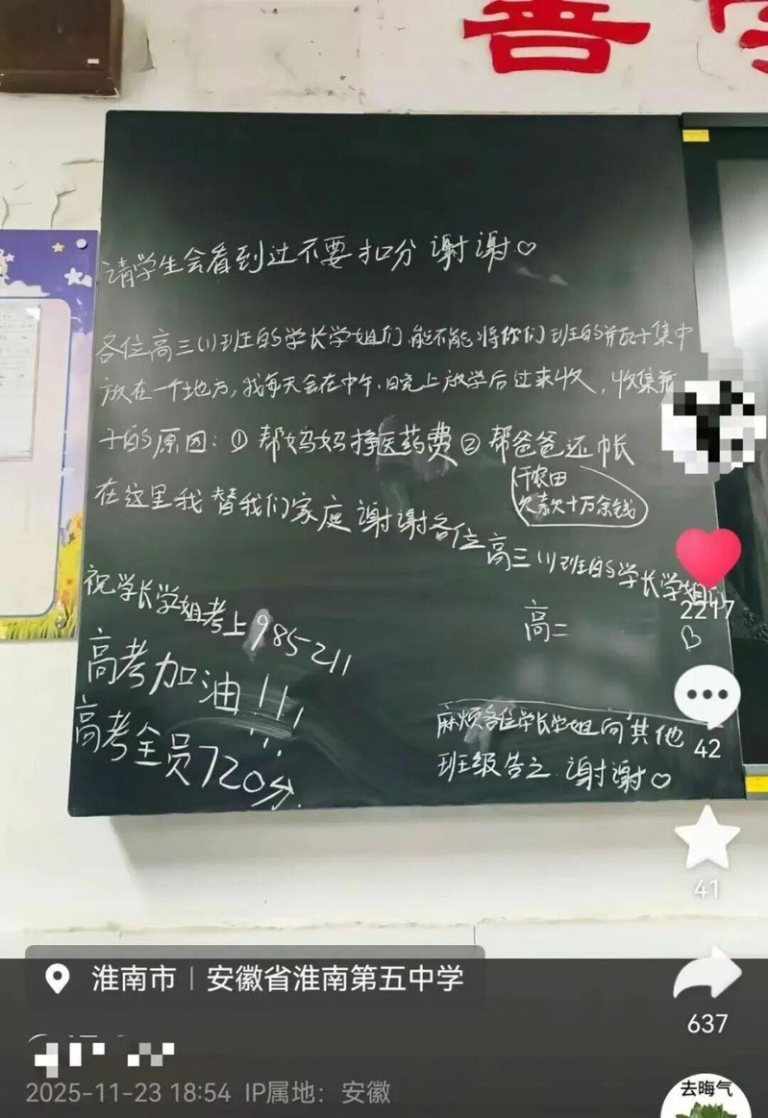 请学生会看到过不要扣分 谢谢♡
各位高三(1)班的学长学姐们,能不能将你们班的瓶子集中
放在一个地方,我每天会在中午、晚上放学后过来收,收集瓶
子的原因:① 帮妈妈挣医药费② 帮爸爸还帐
干农田
欠款十万余钱
在这里我替我们家庭谢谢各位高三(1)班的学长学姐们
祝学长学姐考上985211
高二
高考加油!!!
高考全员720分.
麻烦各位学长学姐向其他
班级告之 谢谢♡
2217
42
41
637
淮南市 | 安徽省淮南第五中学
2025-11-23 18:54 IP属地:安徽
去晦气